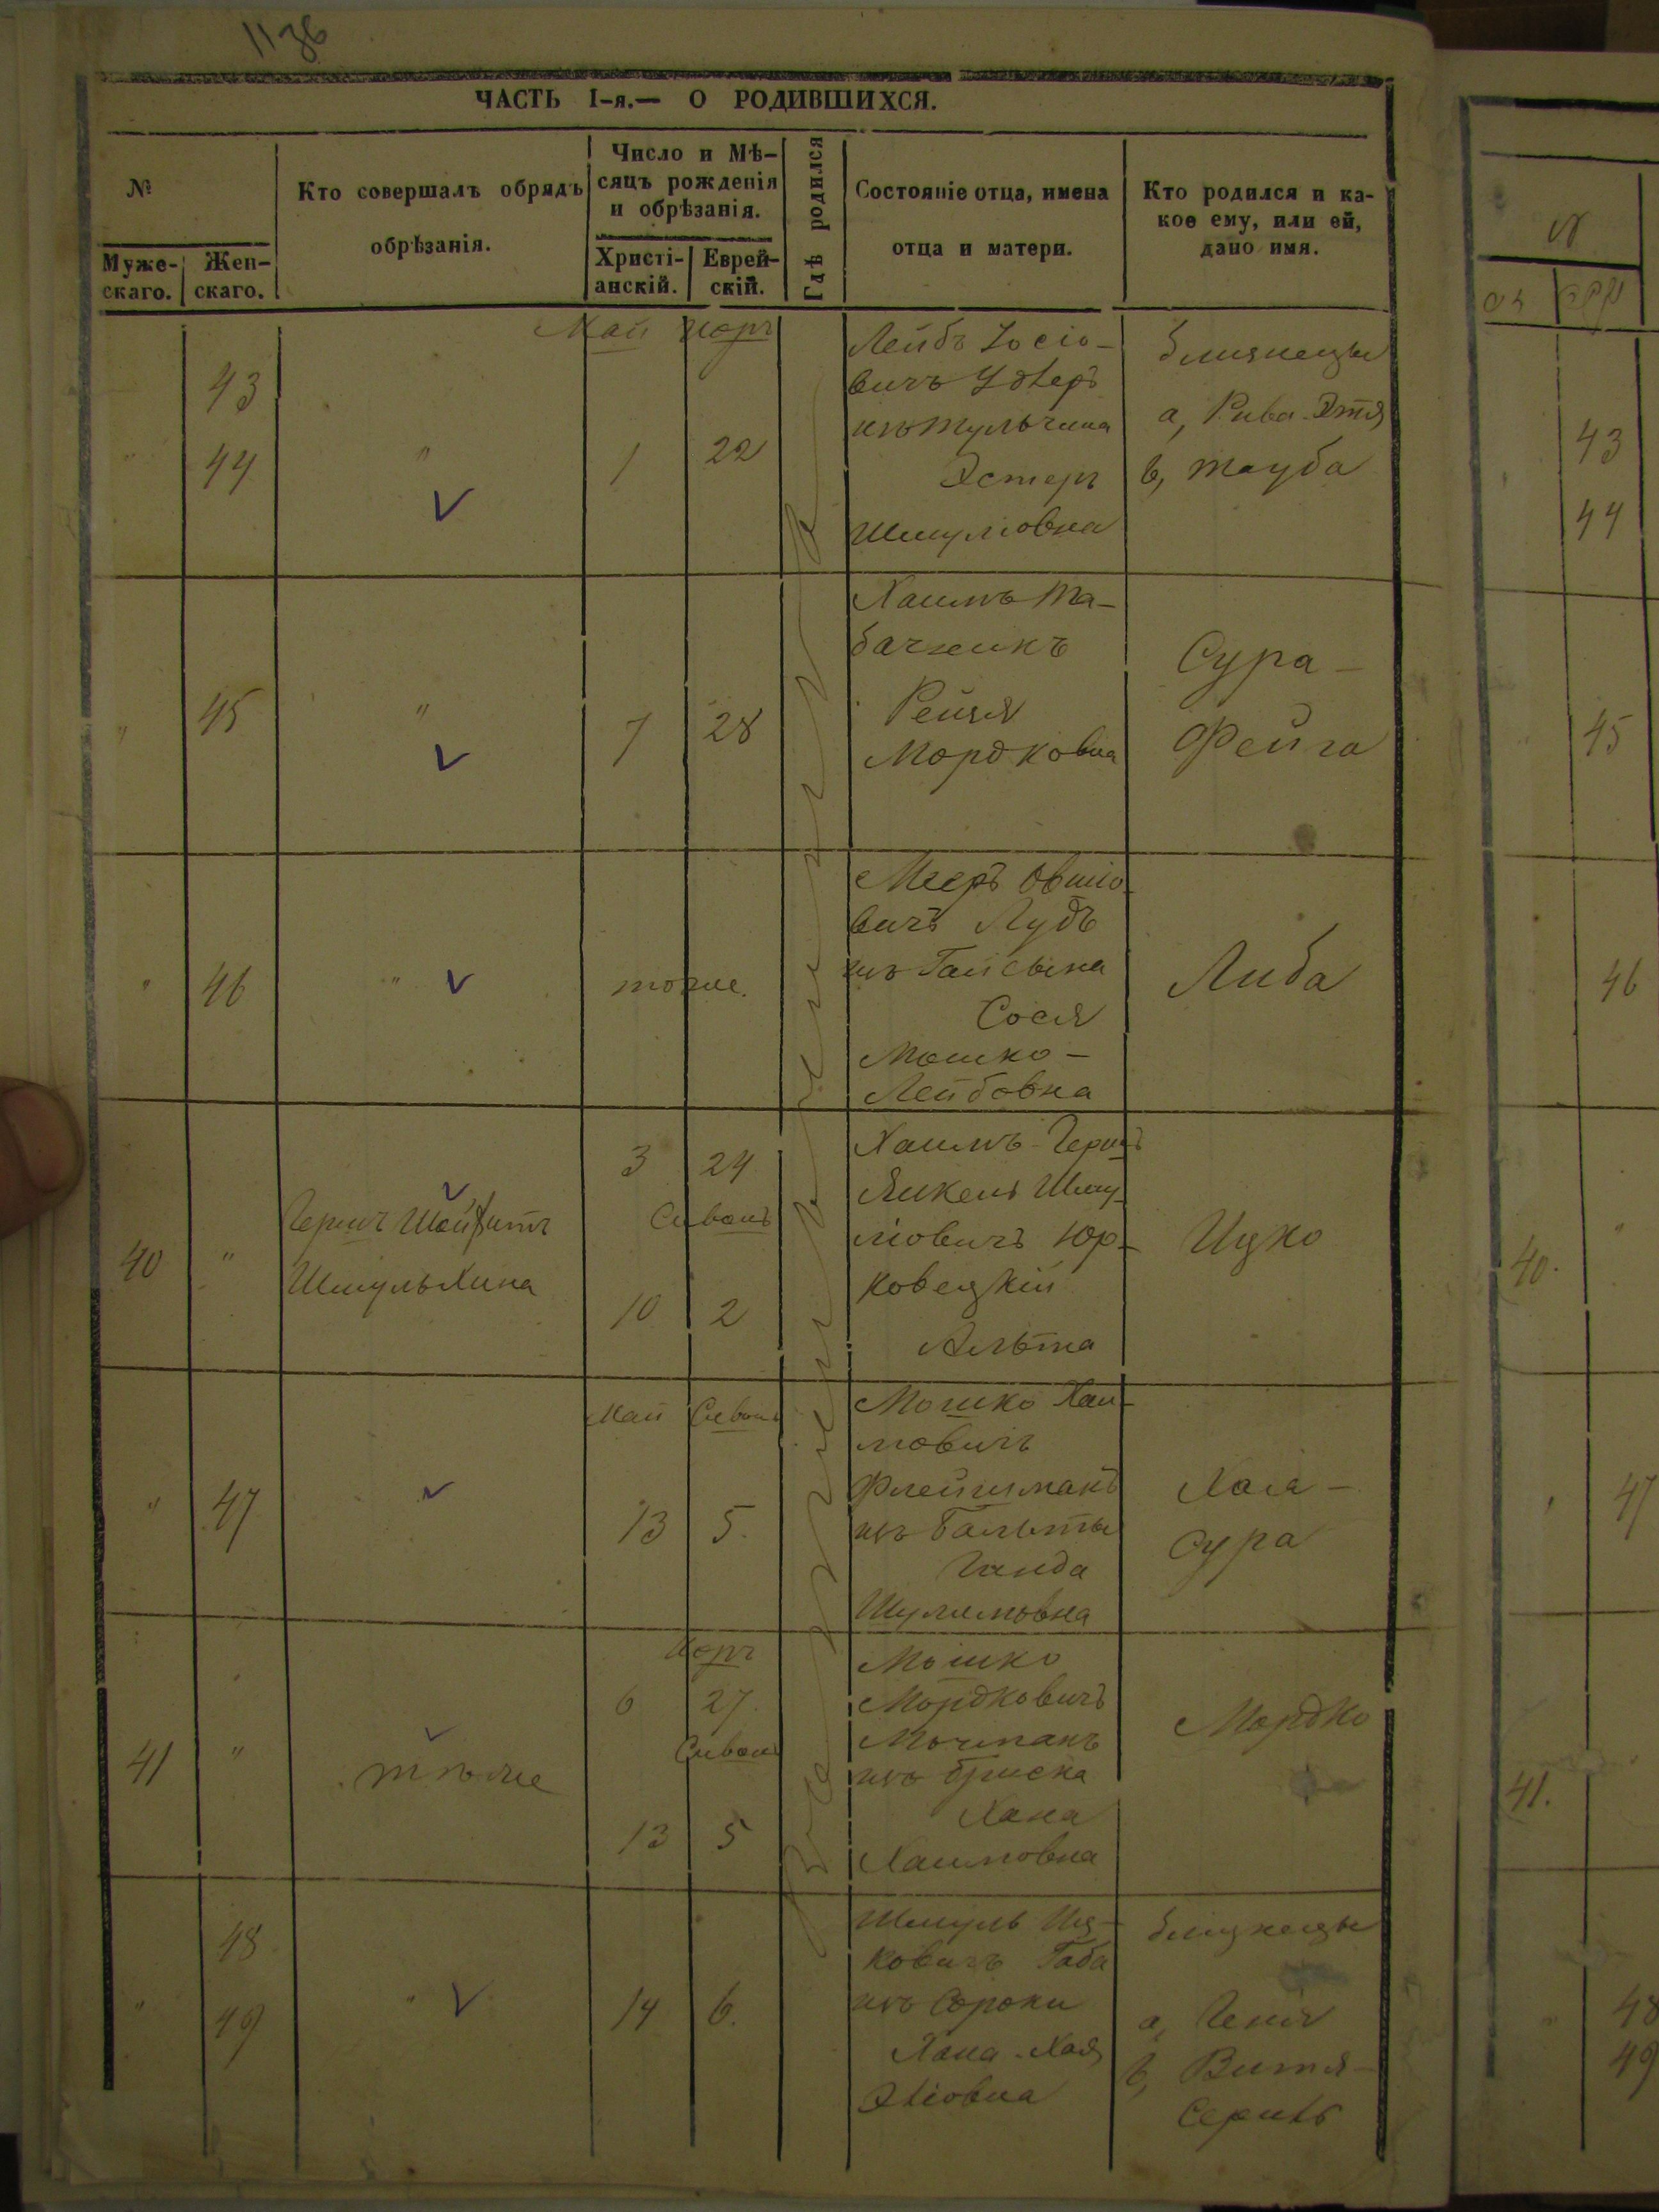 1136
ЧАСТЬ I-я.— О РОДИВШИХСЯ.
№
Муже-
скаго.
Жен-
скаго.
Кто совершалъ обрядъ
обрѣзанія.
Число и Мѣ-
сяцъ рожденія
и обрѣзанія.
Христі-
анскій.
Еврей-
скій.
Гдѣ родился
Состояніе отца, имена
отца и матери.
Кто родился и ка-
кое ему, или ей,
дано имя.
Май Иоръ
43
44
"
"
1
22
Лейбъ Іосіо-
вичъ
изъ Тульчина
Эстеръ
Шмуліовна
близнецы
а, Рива-Этя
в, Тауба
"
45
"
7
28
Хаимъ Та-
бачникъ
Рейзя
Мордковна
Сура-
Фейга
"
46
"
тоже.
Мееръ Овшіо-
вичъ Лудъ
изъ Гайсына
Сося
Мошко-
Лейбовна
Либа
40
"
Гершъ Шойхитъ
Шмулькина
3
24
Сиванъ
10
2
Хаимъ-Гершъ
Янкель Шму-
ліовичъ Юр-
ковецкій
Альта
Ицко
"
47
Май
Сиванъ
13
5.
Мошко Хаи-
мовичъ
Флейшманъ
изъ Балты
Гинда
Шулимовна
Хая-
Сура
41
"
тоже
Иоръ
6
27.
Сиванъ
13
5
Мошко
Мордковичъ
изъ
Хана
Хаимовна
Мордко
48
49
"
"
14
6.
Шмуль Иц-
ковичъ Габа
изъ Сороки
Хана-Хая
близнецы
а, Геня
в, Витя-
43
44
45
46
40.
"
47
41.
48
49